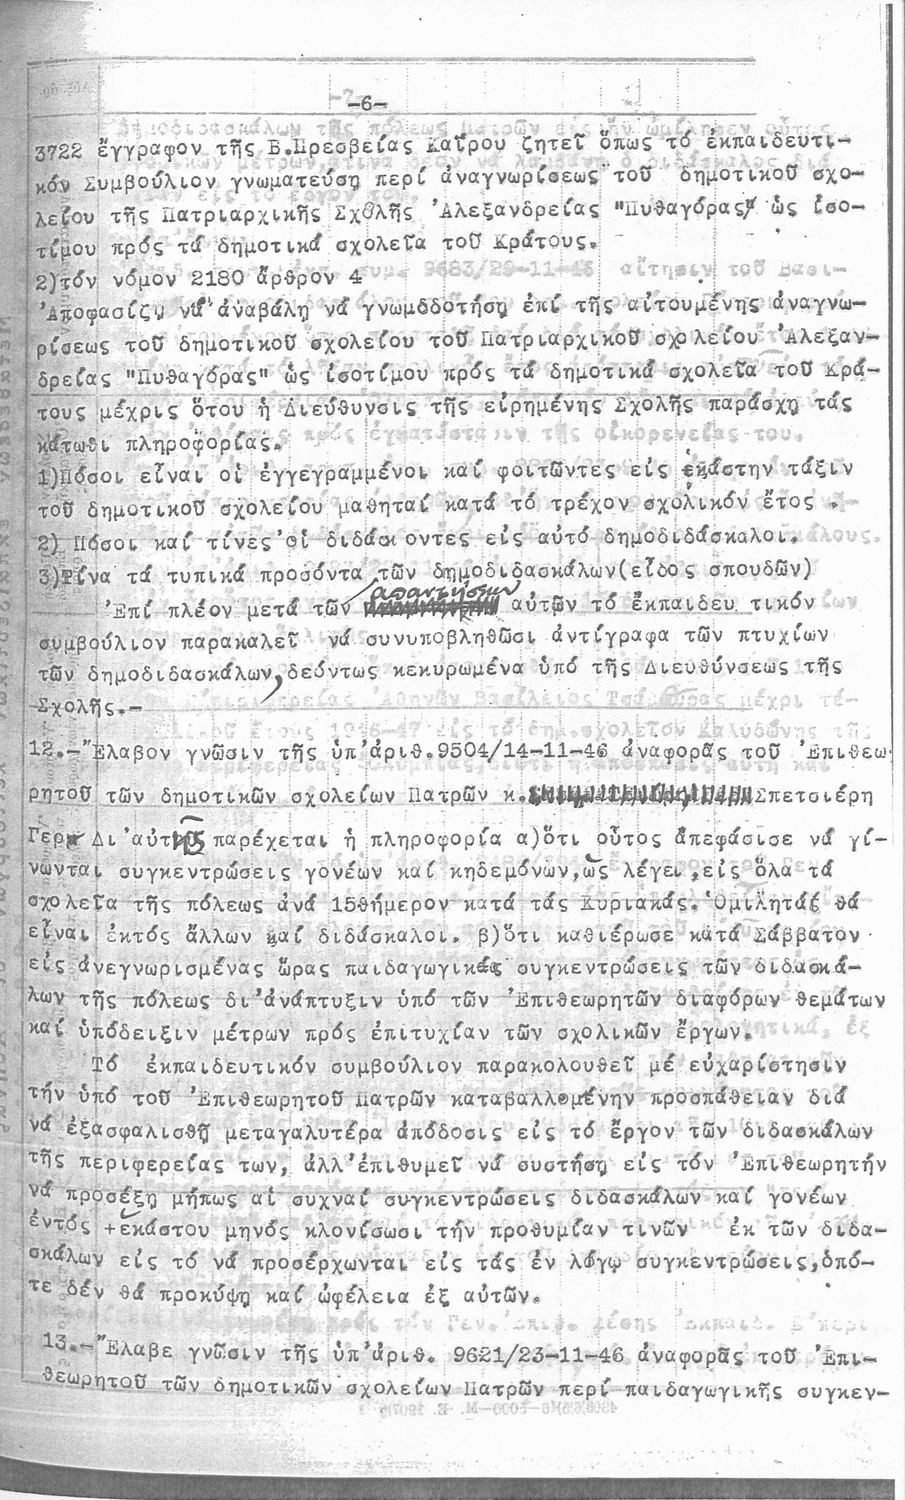 -6-
3722 ἔγγραφον τῆς Β.Πρεσβείας Καΐρου ζητεῖ ὅπως τό ἐκπαιδευτι-
κόν Συμβούλιον γνωματεύσῃ περί ἀναγνωρίσεως τοῦ δημοτικοῦ σχο-
λείου τῆς Πατριαρχικῆς Σχολῆς Ἀλεξανδρείας "Πυθαγόρας" ὡς ἰσο-
τίμου πρός τά δημοτικά σχολεῖα τοῦ Κράτους.
2)τόν νόμον 2180 ἄρθρον 4
Ἀποφασίζει νά ἀναβάλῃ νά γνωμοδοτήσῃ ἐπί τῆς αἰτουμένης ἀναγνω-
ρίσεως τοῦ δημοτικοῦ σχολείου τοῦ Πατριαρχικοῦ σχολείου Ἀλεξαν-
δρείας "Πυθαγόρας" ὡς ἰσοτίμου πρός τά δημοτικά σχολεῖα τοῦ Κρά-
τους μέχρις ὅτου ἡ Διεύθυνσις τῆς εἰρημένης Σχολῆς παράσχῃ τάς
κάτωθι πληροφορίας.
1)Πόσοι εἶναι οἱ ἐγγεγραμμένοι καί φοιτῶντες εἰς ἑκάστην τάξιν
τοῦ δημοτικοῦ σχολείου μαθηταί κατά τό τρέχον σχολικόν ἔτος .
2) Πόσοι καί τίνες οἱ διδάσκοντες εἰς αὐτό δημοδιδάσκαλοι.
3)Τίνα τά τυπικά προσόντα τῶν δημοδιδασκάλων(εἶδος σπουδῶν)
Ἐπί πλέον μετά τῶν ἀπαντήσεων αὐτῶν τό ἐκπαιδευ τικόν
συμβούλιον παρακαλεῖ νά συνυποβληθῶσι ἀντίγραφα τῶν πτυχίων
τῶν δημοδιδασκάλων,δεόντως κεκυρωμένα ὑπό τῆς Διευθύνσεως τῆς
Σχολῆς.-
12.-Ἔλαβον γνῶσιν τῆς ὑπ'ἀριθ.9504/14-11-46 ἀναφορᾶς τοῦ Ἐπιθεω-
ρητοῦ τῶν δημοτικῶν σχολείων Πατρῶν κ. Σπετσιέρη
Γερ. Δι'αὐτῆς παρέχεται ἡ πληροφορία α)ὅτι οὗτος ἀπεφάσισε νά γί-
νωνται συγκεντρώσεις γονέων καί κηδεμόνων,ὡς λέγει,εἰς ὅλα τά
σχολεῖα τῆς πόλεως ἀνά 15θήμερον κατά τάς Κυριακάς. Ὁμιληταί θά
εἶναι ἐκτός ἄλλων καί διδάσκαλοι. β)ὅτι καθιέρωσε κατά Σάββατον
εἰς ἀνεγνωρισμένας ὥρας παιδαγωγικάς συγκεντρώσεις τῶν διδασκά-
λων τῆς πόλεως δι'ἀνάπτυξιν ὑπό τῶν Ἐπιθεωρητῶν διαφόρων θεμάτων
καί ὑπόδειξιν μέτρων πρός ἐπιτυχίαν τῶν σχολικῶν ἔργων.
Τό ἐκπαιδευτικόν συμβούλιον παρακολουθεῖ μέ εὐχαρίστησιν
τήν ὑπό τοῦ Ἐπιθεωρητοῦ Πατρῶν καταβαλλομένην προσπάθειαν διά
νά ἐξασφαλισθῇ μεταγαλυτέρα ἀπόδοσις εἰς τό ἔργον τῶν διδασκάλων
τῆς περιφερείας των, ἀλλ'ἐπιθυμεῖ νά συστήσῃ εἰς τόν Ἐπιθεωρητήν
νά προσέξῃ μήπως αἱ συχναί συγκεντρώσεις διδασκάλων καί γονέων
ἐντός +ἑκάστου μηνός κλονίσωσι τήν προθυμίαν τινῶν ἐκ τῶν διδα-
σκάλων εἰς τό νά προσέρχωνται εἰς τάς ἐν λόγῳ συγκεντρώσεις,ὁπό-
τε δέν θά προκύψῃ καί ὠφέλεια ἐξ αὐτῶν.
13.-Ἔλαβε γνῶσιν τῆς ὑπ'ἀριθ. 9621/23-11-46 ἀναφορᾶς τοῦ Ἐπι-
θεωρητοῦ τῶν δημοτικῶν σχολείων Πατρῶν περί παιδαγωγικῆς συγκεν-